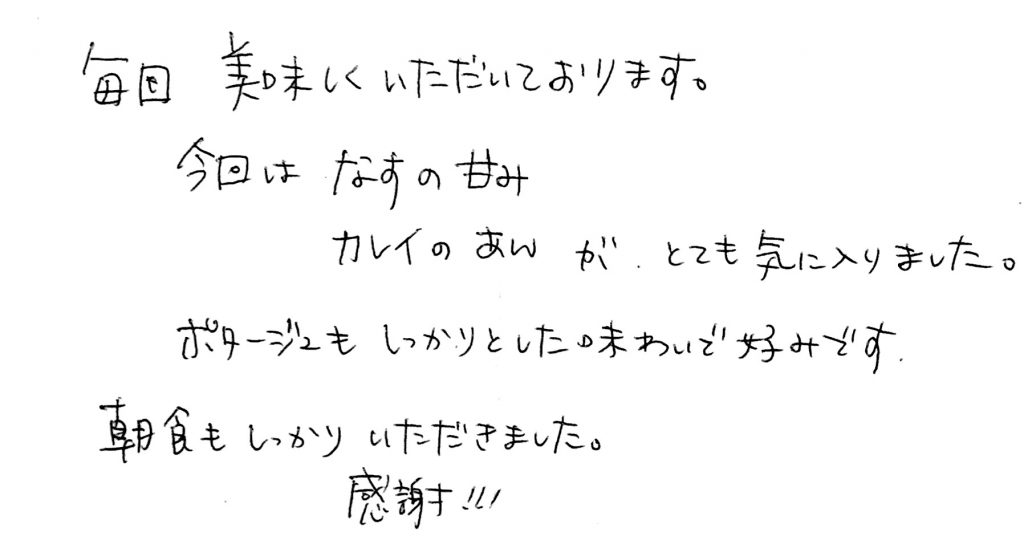 毎回 美味しくいただいております。
今回は なすの甘み
カレイのあん が、とても気に入りました。
ポタージュも しっかりとした味わいで好みです。
朝食も しっかり いただきました。
感謝!!!